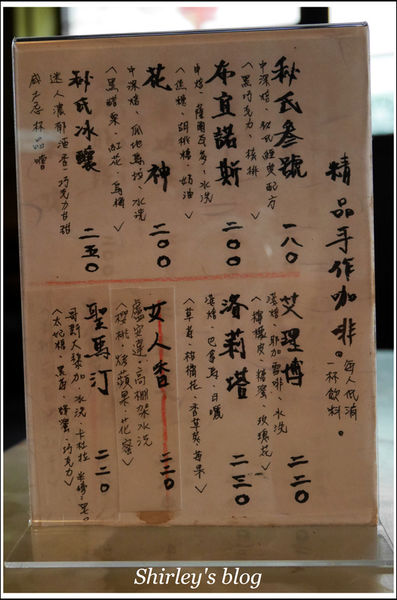 精品手作咖啡。
每人低消
一杯飲料。
秋氏叁號 一八〇
中深焙、秋氏經典配方
＜黑巧克力、核桃＞
布宜諾斯 二〇〇
中焙、薩爾瓦多、水洗
＜焦糖、胡桃糖、奶油＞
花神 二〇〇
中深焙、瓜地馬拉、水洗
＜黑醋栗、紅花、烏梅＞
秋氏冰釀 二五〇
迷人濃郁酒香、巧克力甘甜
威士忌杯品嚐
艾理博 二二〇
淺焙、耶加雪啡、水洗
＜檸檬皮、橙蜜、玫瑰花＞
洛莉塔 二三〇
淺焙、巴拿馬、日曬
＜草莓、柑橘花、香草莢、莓果＞
女人香 二二〇
盧安達、高棚架水洗
＜櫻桃、烤蘋果、花蜜＞
聖馬汀 二二〇
哥斯大黎加、水洗、卡杜拉
＜太妃糖、黑莓、蜂蜜、巧克力＞
Shirley's blog